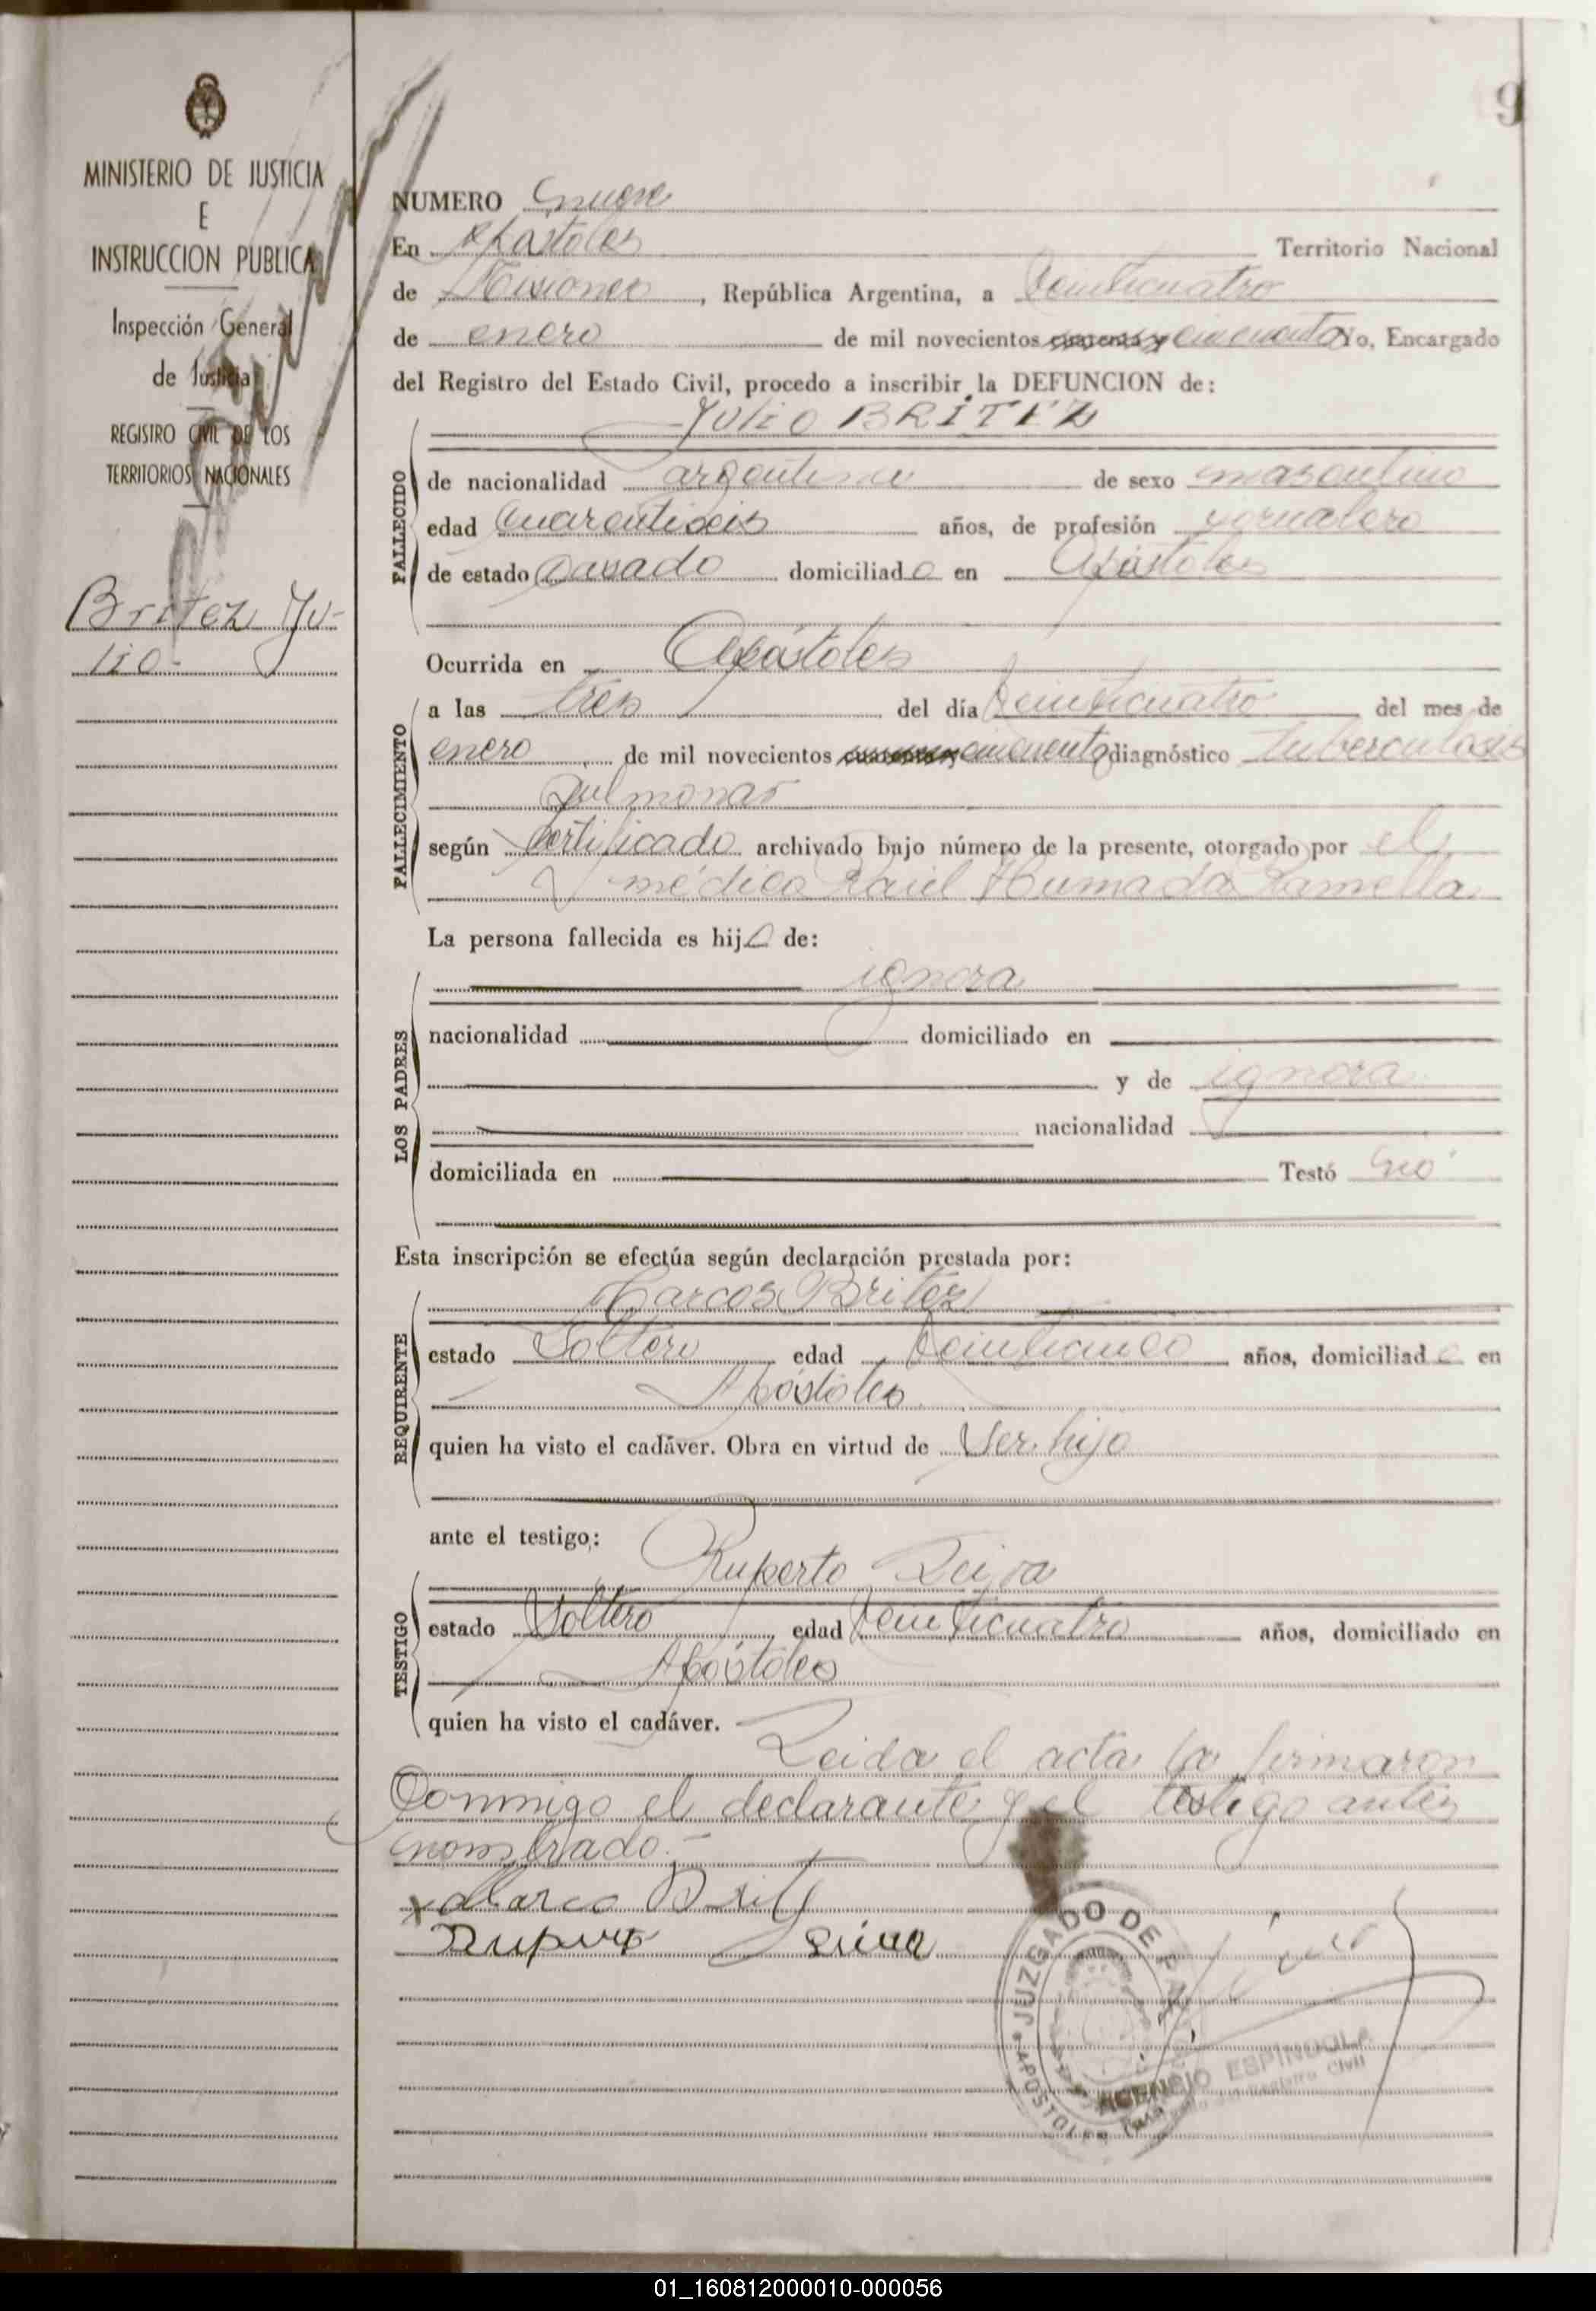 9
MINISTERIO DE JUSTICIA
E
INSTRUCCION PUBLICA
Inspección General
de Justicia
REGISTRO CIVIL DE LOS
TERRITORIOS NACIONALES
Britez Ju-
lio-
NUMERO nueve
En Apóstoles Territorio Nacional
de Misiones, República Argentina, a veinticuatro
de enero de mil novecientos cincuenta Yo, Encargado
del Registro del Estado Civil, procedo a inscribir la DEFUNCION de:
Julio BRITEZ
FALLECIDO
de nacionalidad argentina de sexo masculino
edad cuarentiseis años, de profesión jornalero
de estado casado domiciliado en Apóstoles
Ocurrida en Apóstoles
FALLECIMIENTO
a las tres del día veinticuatro del mes de
enero de mil novecientos cincuenta diagnóstico tuberculosis
pulmonar
según certificado archivado bajo número de la presente, otorgado por el
médico Raúl Humada Ramella
La persona fallecida es hijo de:
LOS PADRES
ignora
nacionalidad domiciliado en
y de ignora
nacionalidad
domiciliada en Testó no
Esta inscripción se efectúa según declaración prestada por:
REQUIRENTE
Marcos Britez
estado soltero edad veinticinco años, domiciliado en
Apóstoles
quien ha visto el cadáver. Obra en virtud de ser hijo
ante el testigo:
TESTIGO
Ruperto Leiva
estado soltero edad veinticuatro años, domiciliado en
Apóstoles
quien ha visto el cadáver.
Leida el acta la firmaron
conmigo el declarante y el testigo antes
nombrado.-
Marco Brit
Leiva
JUZGADO DE PAZ
APOSTOLES
ASENCIO ESPINDOLA
Registro Civil
01_160812000010-000056